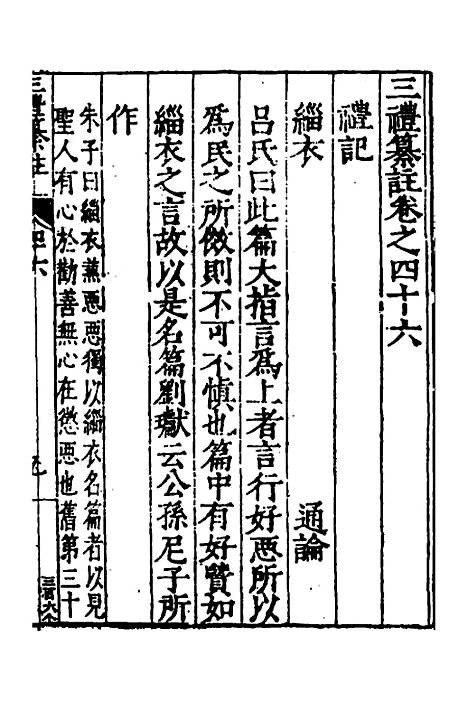 三禮纂註卷之四十六
禮記
緇衣　　　　　　　　通論
呂氏曰此篇大指言爲上者言行好惡所以
爲民之所傚則不可不慎也篇中有好賢如
緇衣之言故以是名篇劉瓛云公孫尼子所
作
朱子曰緇衣兼惡惡獨以緇衣名篇者以見
聖人有心於勸善無心在懲惡也舊第三十
三禮纂註　卷四六